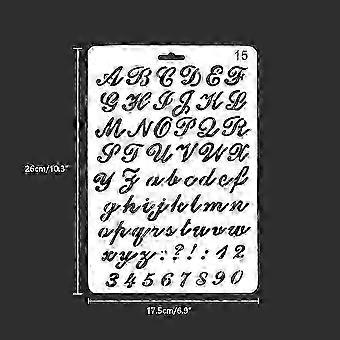 15
A B C D E F
G H I J K L
M N O P Q R
S T U V W X
Y Z a b c d e f
g h i j k l m n
o p q r s t u v w
x y z : ? ! : 1 2
3 4 5 6 7 8 9 0
26cm/10.3"
17.5cm/6.9"